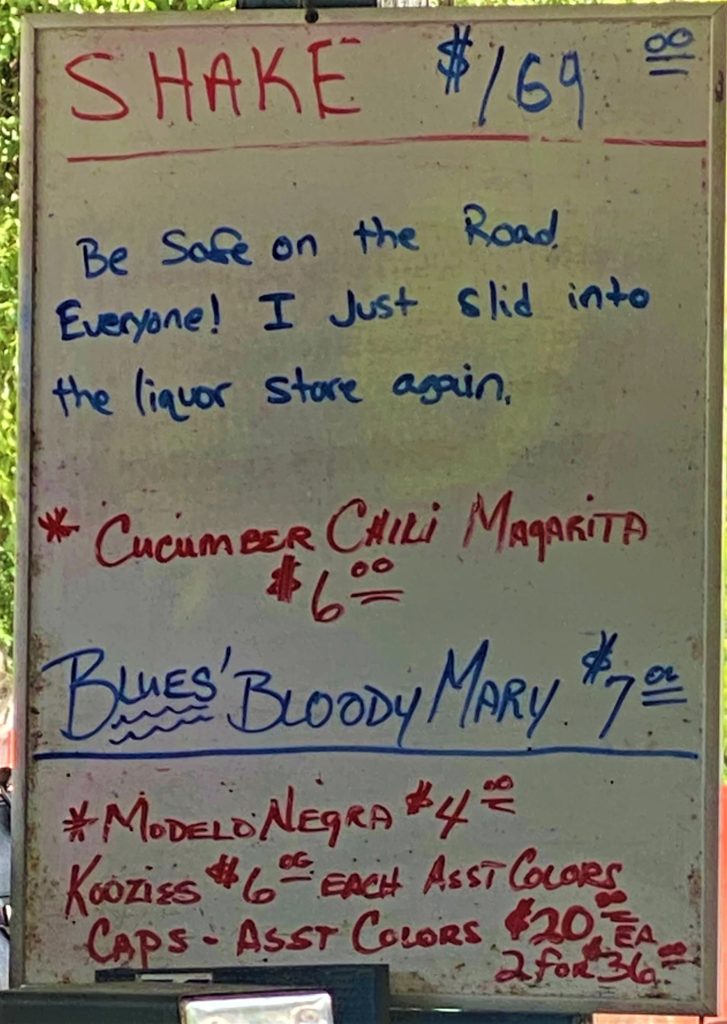 SHAKE $169 00
Be Safe on the Road
Everyone! I Just slid into
the liquor store again.
* CUCUMBER CHILI MAGARITA
$6 00
BLUES' BLOODY MARY $7 00
*MODELO NEGRA $4 00
KOOZIES $6 00 EACH ASST COLORS
CAPS - ASST COLORS $20 00 EA
2 FOR $36 00